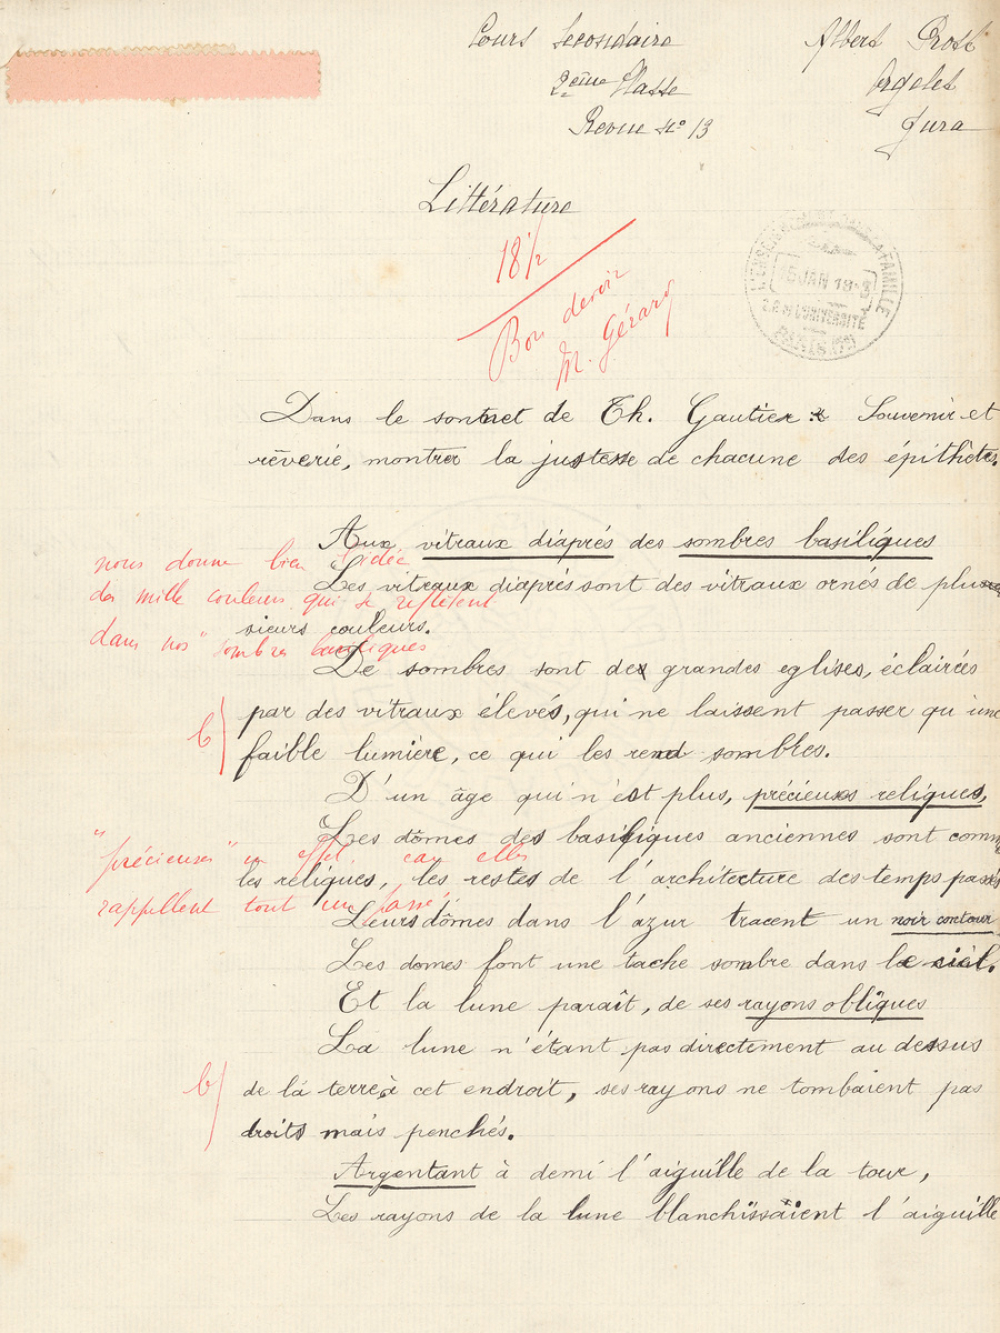 Cours Secondaire
Albert Prost
2ème Classe
Orgelet
Revue No 13
Jura
Littérature
18 1/2
Bon devoir
M. Gérard
L'ENSEIGNEMENT DANS LA FAMILLE
15 JAN 18
L'UNIVERSITÉ
PARIS
Dans le sonnet de Th. Gautier : Souvenir et
rêverie, montrer la justesse de chacune des épithètes.
Aux vitraux diaprés des sombres basiliques
nous donne bien l'idée
Les vitraux diaprés sont des vitraux ornés de plu
des mille couleurs qui se reflètent
sieurs couleurs.
dans nos "sombres basiliques
De sombres sont des grandes eglises, éclairées
par des vitraux élevés, qui ne laissent passer qu'une
b
faible lumière, ce qui les rend sombles.
D'un âge qui n'est plus, précieuses reliques,
Les dômes des basiliques anciennes sont comm
"précieuses" en effet, car elles
les reliques, les restes de l'architecture des temps passés
rappellent tout un passé.
Leurs dômes dans l'azur tracent un noir contour
Les domes font une tache sombre dans le ciel.
Et la lune paraît, de ses rayons obliques
La lune n'étant pas directement au dessus
b
de la terre à cet endroit, ses rayons ne tombaient pas
droits mais penchés.
Argentant à demi l'aiguille de la tour,
Les rayons de la lune blanchissaient l'aiguille